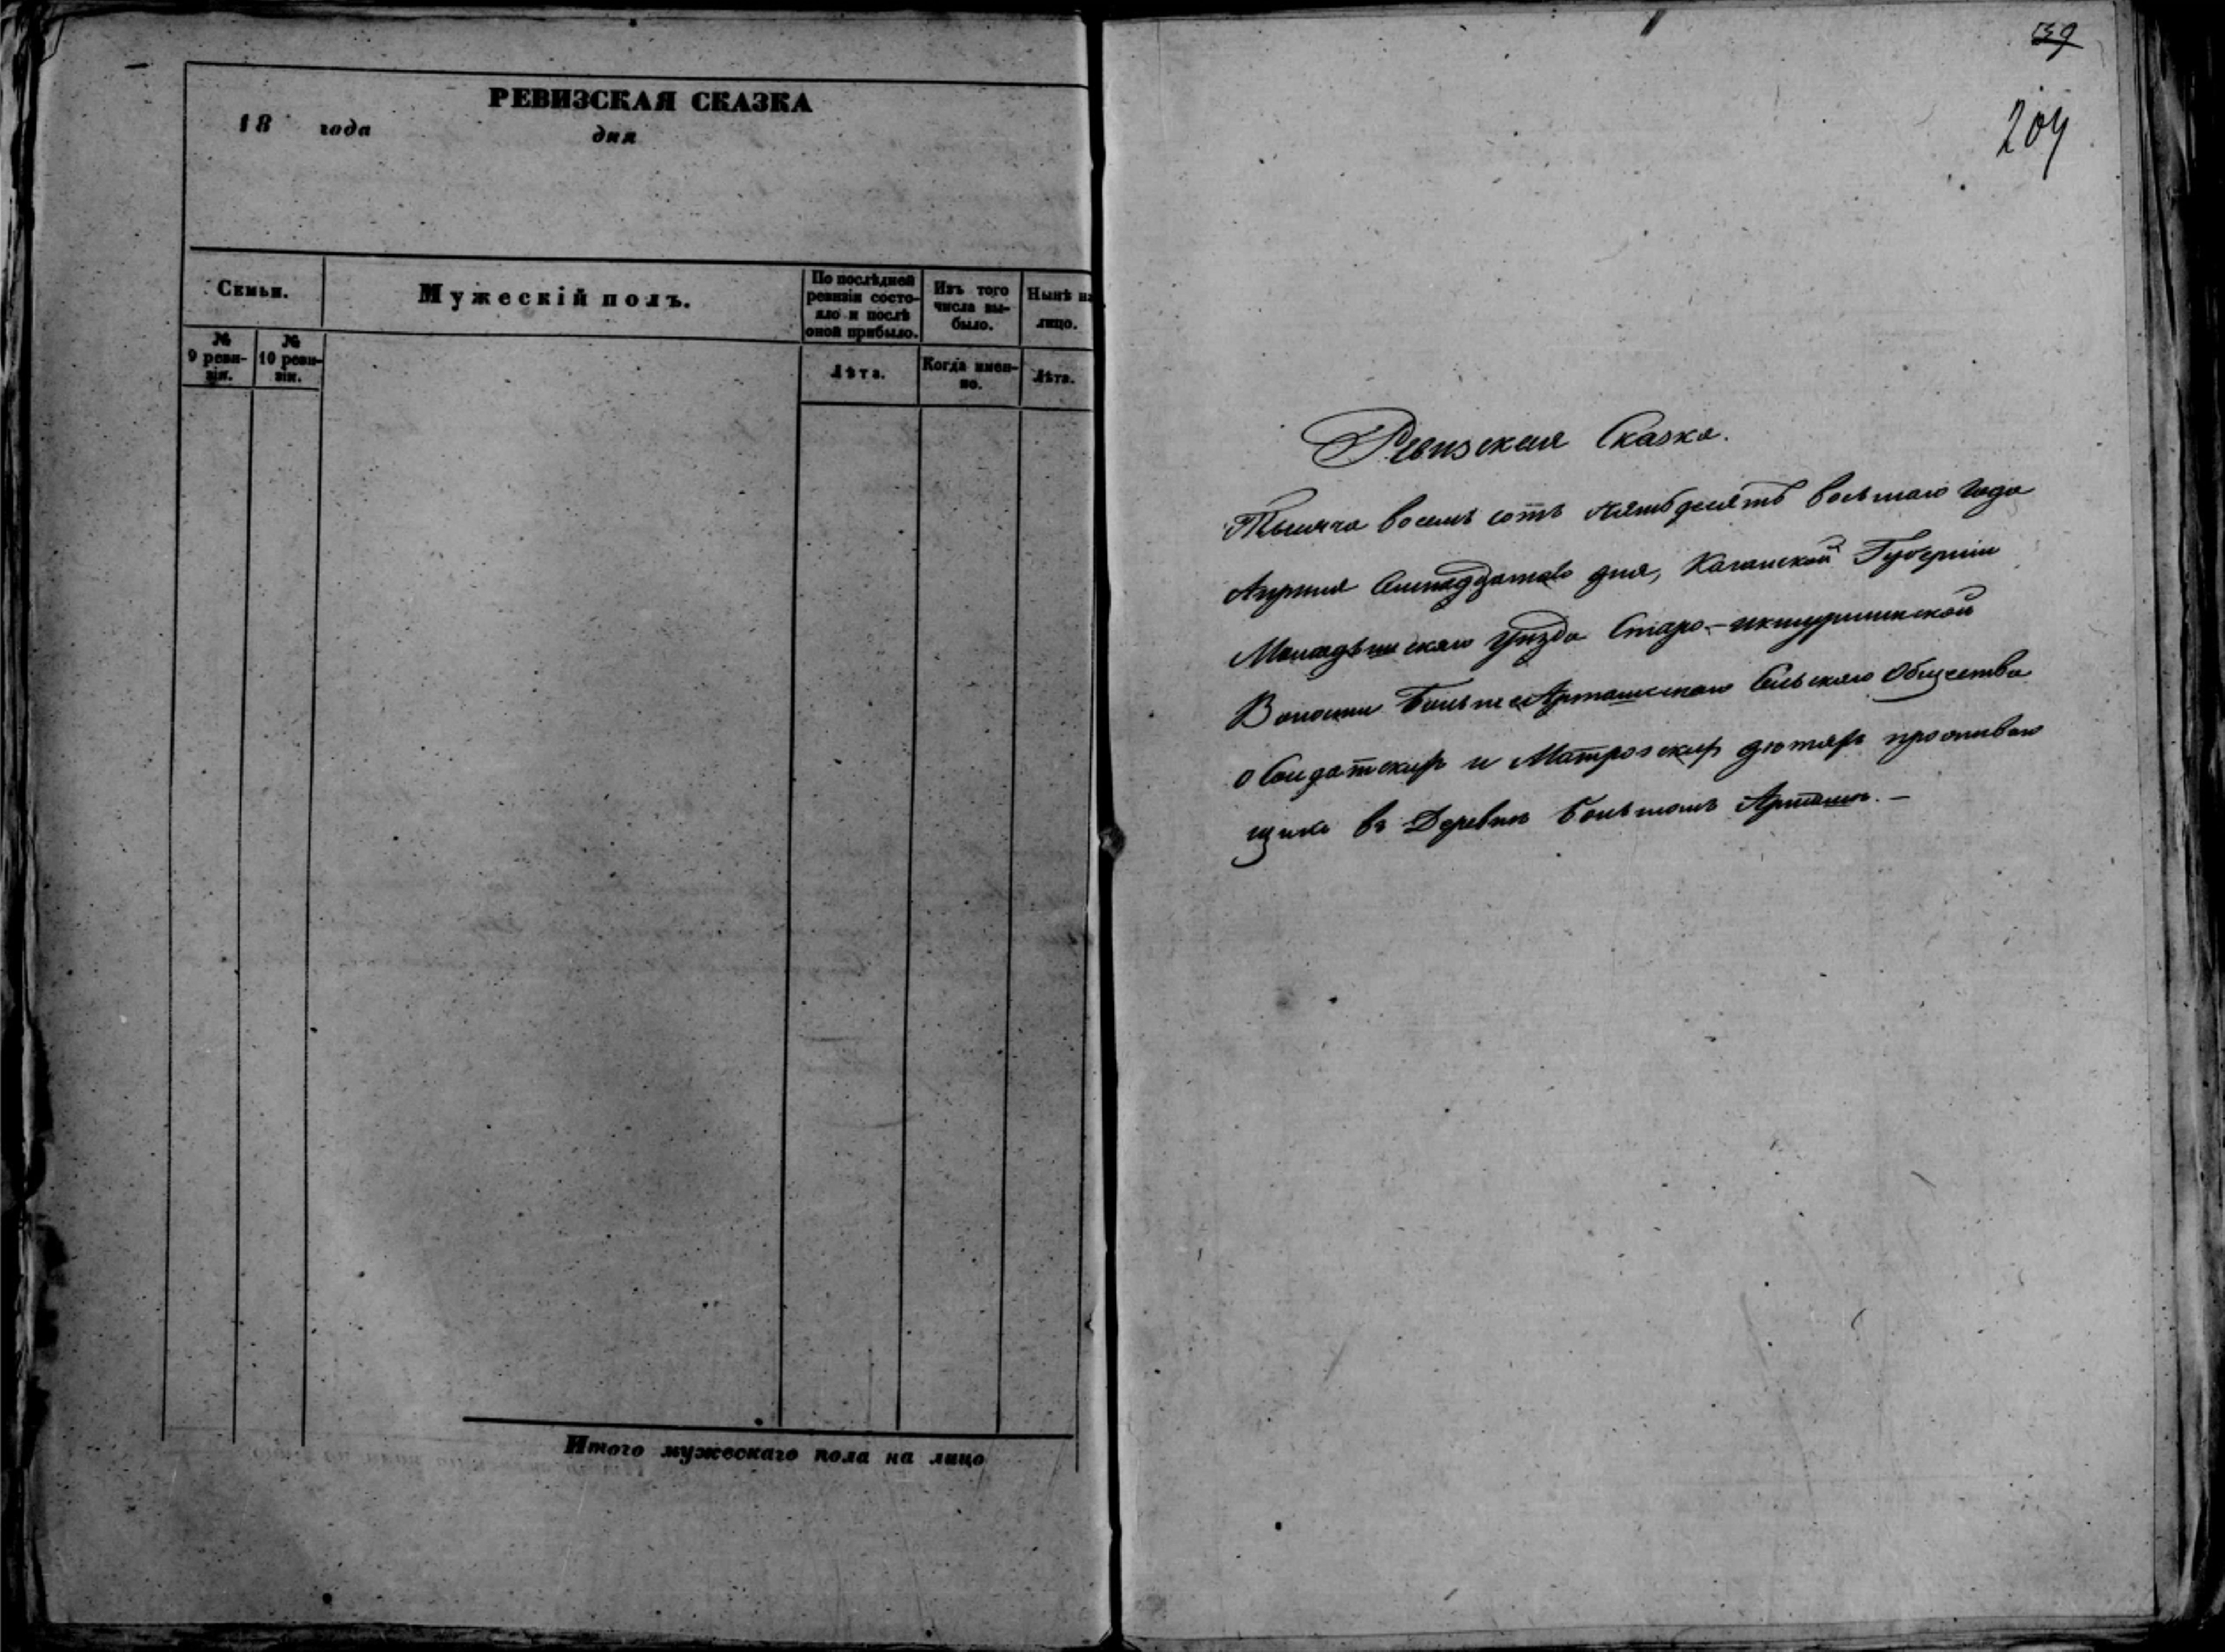 РЕВИЗСКАЯ СКАЗКА
18 года дня
Семьи.
Мужескій полъ.
По послѣдней ревизіи состояло и послѣ оной прибыло.
Изъ того числа выбыло.
Нынѣ на лицо.
№ 9 ревизіи.
№ 10 ревизіи.
Лѣта.
Когда именно.
Лѣта.
Итого мужескаго пола на лицо
39
204
Ревизская Сказка.
Тысяча восемь сотъ пятьдесятъ восьмаго года
Апрѣля дня, Казанской Губерніи
Мамадышскаго уѣзда Старо-икшурминской
Волости Больше Арташскаго Сельскаго Общества
о Солдатскихъ и Матроскихъ дѣтяхъ проживаю
щихъ въ Деревнѣ Большомъ Арташѣ.-